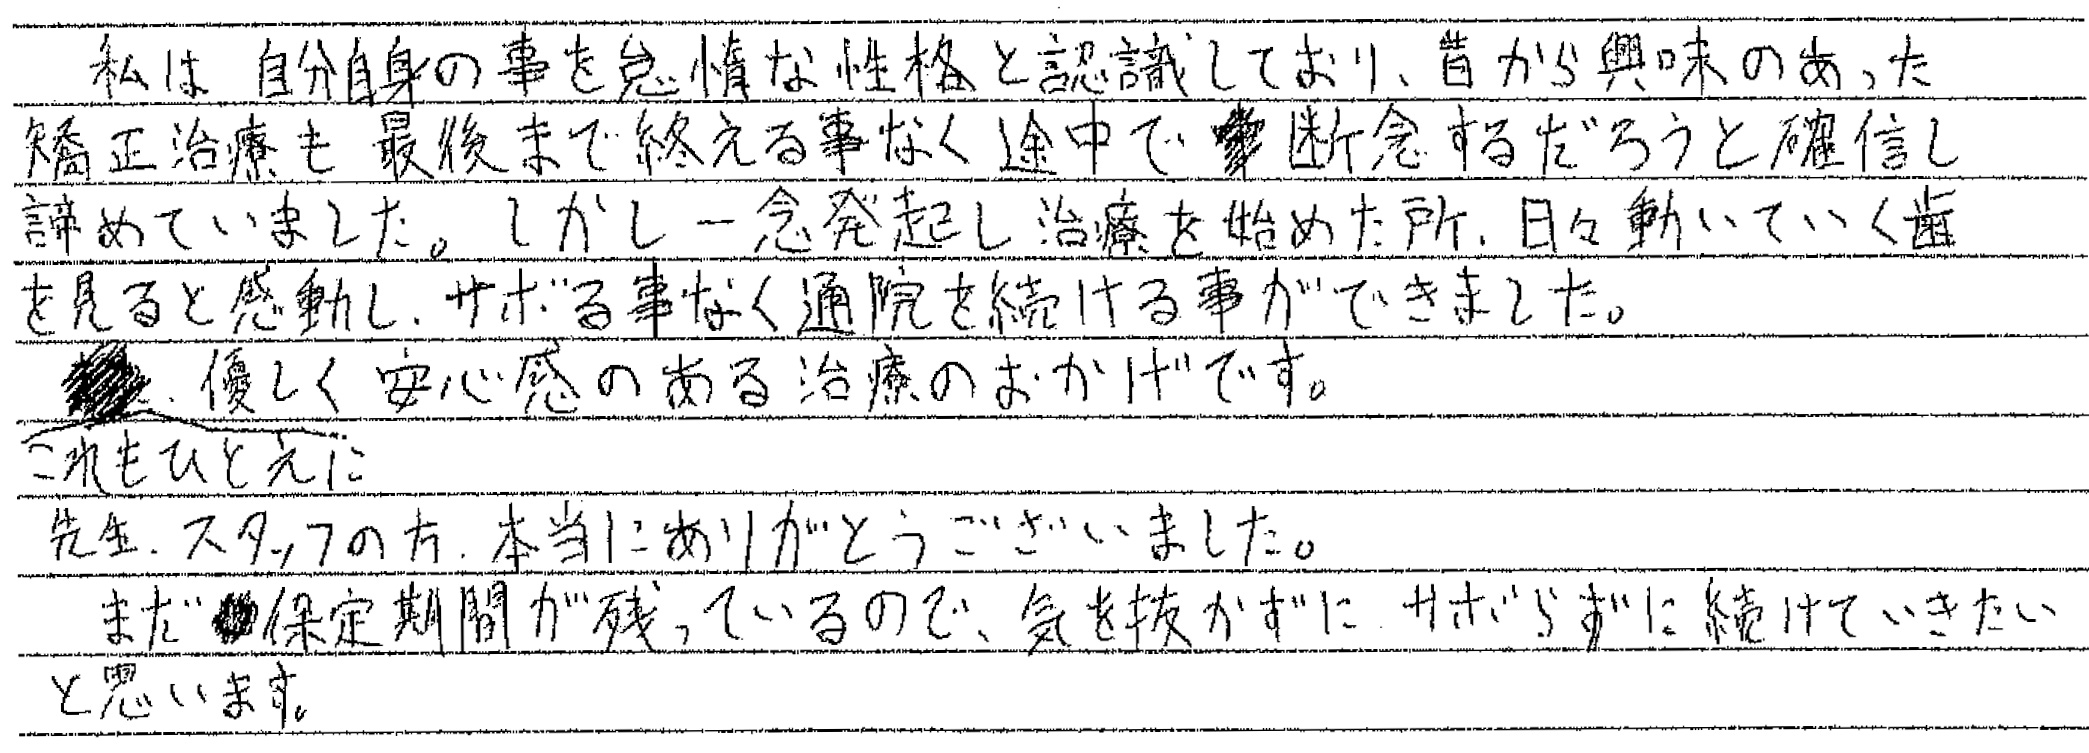 私は自分自身の事を怠惰な性格と認識しており、昔から興味のあった
矯正治療も最後まで終える事なく途中で断念するだろうと確信し
諦めていました。しかし一念発起し治療を始めた所、日々動いていく歯
を見ると感動し、サボる事なく通院を続ける事ができました。
優しく安心感のある治療のおかげです。
これもひとえに
先生、スタッフの方、本当にありがとうございました。
まだ保定期間が残っているので、気を抜かずに、サボらずに続けていきたい
と思います。